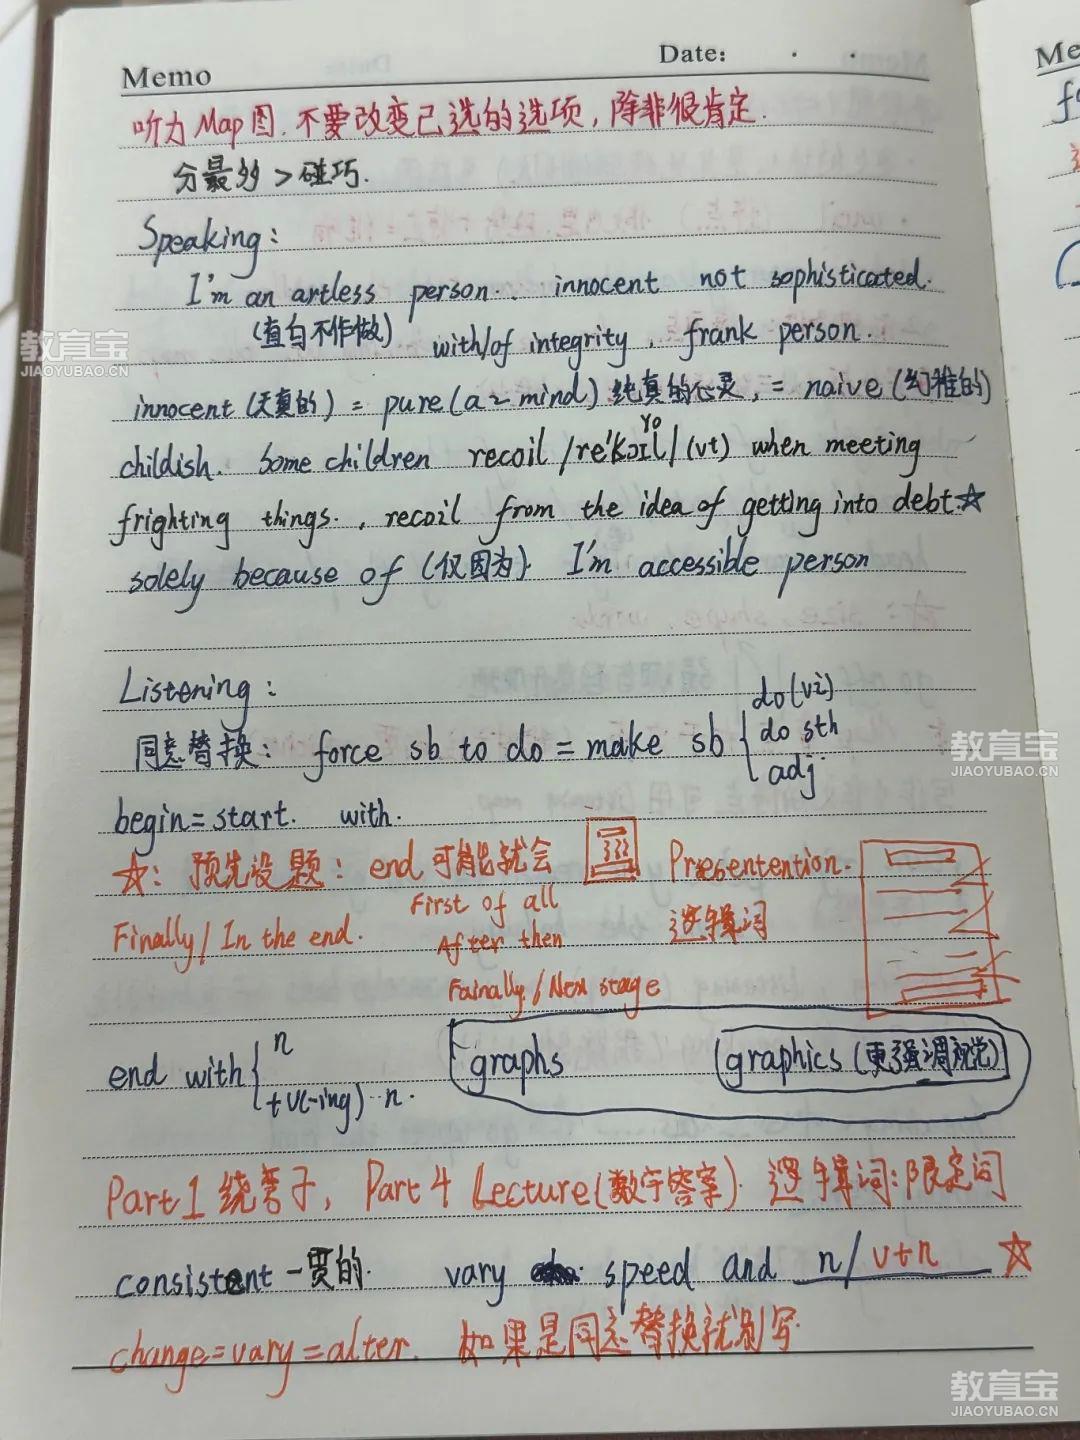 Memo
Date:
听为Map图.不要改变已选的选项，除非很肯定.
分最多>碰巧.
Speaking:
I'm an artless person. innocent not sophisticated.
(直白不作做) with/of integrity, frank person.
innocent(天真的) = pure(a~mind)纯真的心灵, = naive(幼稚的)
childish. Some children recoil /re'kɔɪl/(vt) when meeting
frighting things. , recoil from the idea of getting into debt.☆
solely because of (仅因为). I'm accessible person
Listening:
同意替换: force sb to do = make sb { do(vi)
do sth
adj.
begin=start. with.
☆: 预先设题: end可能就会 Presentention.
Finally/ In the end. First of all 逻辑词
After then
Fainally/Nex stage
end with { n
+v(-ing) n.
graphs graphics(更强调视觉)
Part1绕弯子, Part4 Lecture(数字答案). 逻辑词:限定词
consistent 一贯的. vary speed and n/v+n ☆
change=vary=alter. 如果是同意替换就别写.
教育宝
JIAOYUBAO.CN
教育宝
JIAOYUBAO.CN
教育宝
JIAOYUBAO.CN